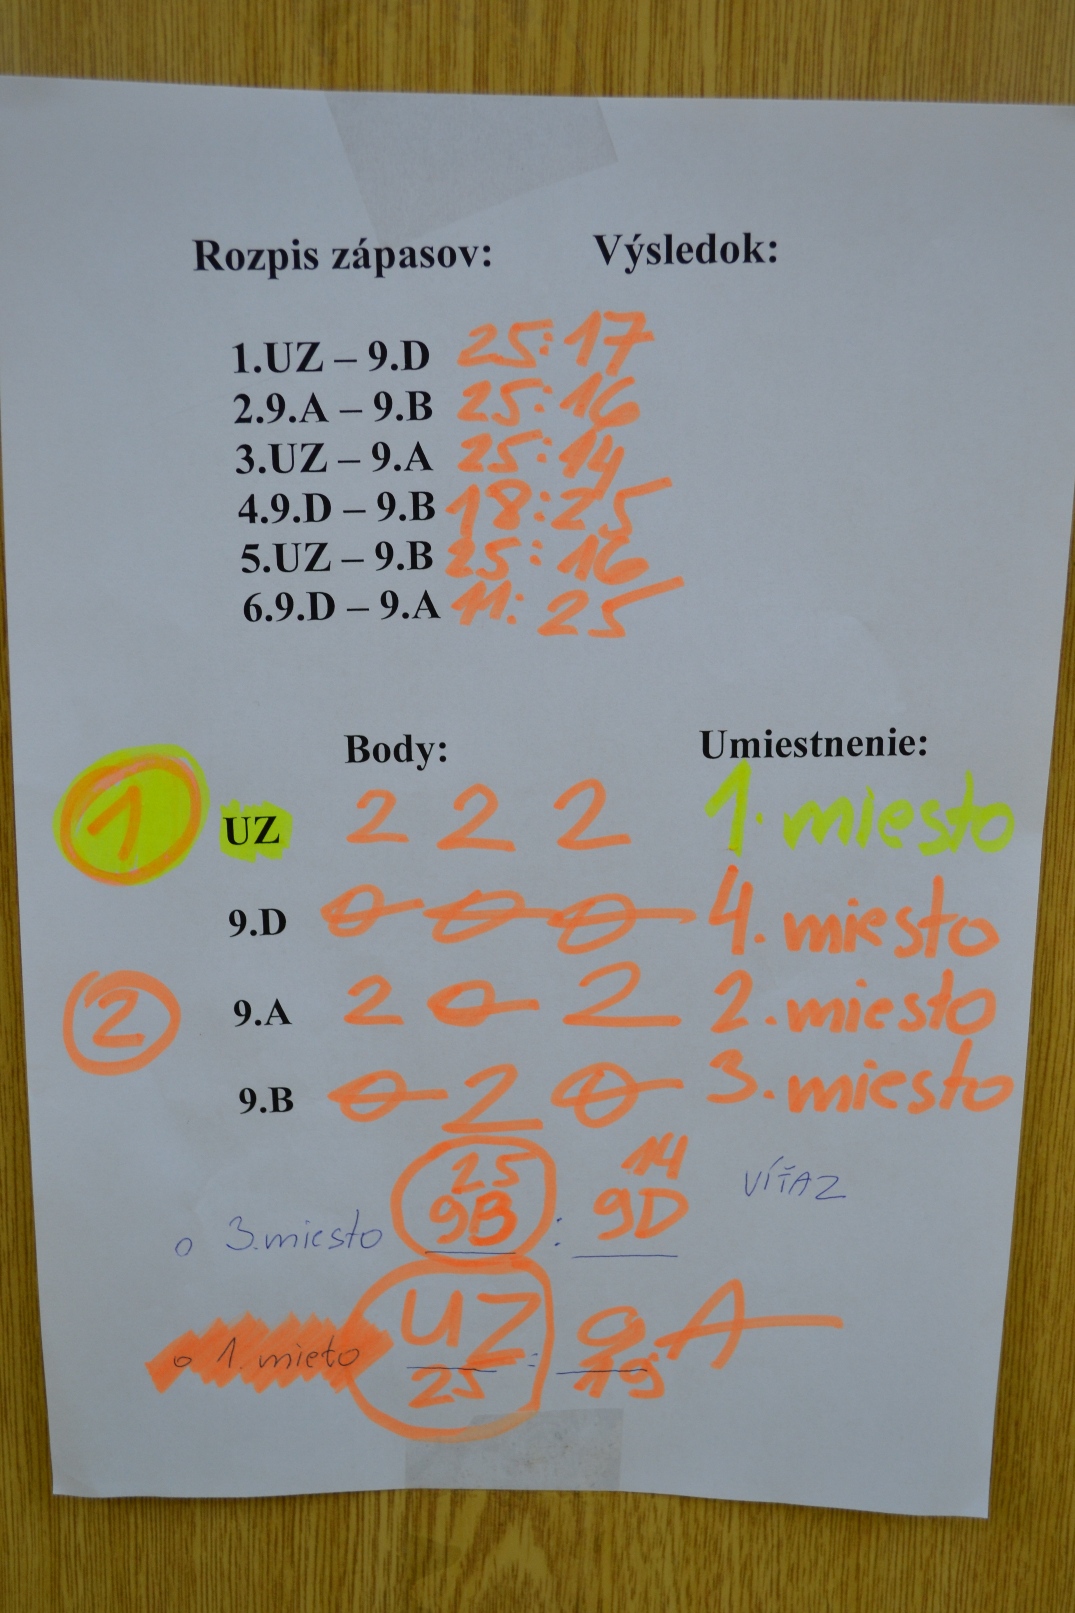 Rozpis zápasov: Výsledok:
1.UZ – 9.D 25:17
2.9.A – 9.B 25:16
3.UZ – 9.A 25:14
4.9.D – 9.B 18:25
5.UZ – 9.B 25:16
6.9.D – 9.A 11:25
Body: Umiestnenie:
1 UZ 2 2 2 1. miesto
9.D 0 0 0 4. miesto
2 9.A 2 0 2 2. miesto
9.B 0 2 0 3. miesto
25 14
o 3. miesto 9B : 9D VÍŤAZ
o 1. mieto UZ : 9.A
25 19